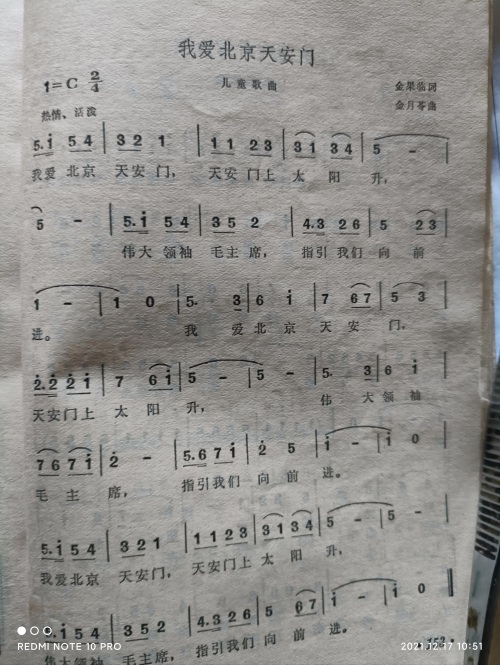 我爱北京天安门
1=C 2/4
儿童歌曲
金果临词
热情、活泼
金月苓曲
5.i 54 | 321 | 1123 | 3134 | 5 - |
我爱北京 天安门, 天安门上 太阳 升,
5 - | 5.i 54 | 352 | 4.3 26 | 5 23 |
伟大领袖 毛主席, 指引我们 向前
1 - | 1 0 | 5. 3 | 6 i | 7 67 | 5 3 |
进。 我 爱 北 京 天 安 门,
2.221 | 7 6i | 5 - | 5 - | 5. 3 | 6 i |
天安门上 太阳 升, 伟 大 领 袖
767i | 2 - | 5.67i | 2 5 | i - | i 0 |
毛 主 席, 指引我们 向 前 进。
5.i 54 | 321 | 1123 | 3134 | 5 - | 5 - |
我爱北京 天安门, 天安门上 太阳 升,
5.i 54 | 352 | 4.3 26 | 5 67 | i - | i 0 ‖
伟大领袖 毛主席, 指引我们 向 前 进。
REDMI NOTE 10 PRO
2021.12.17 10:51